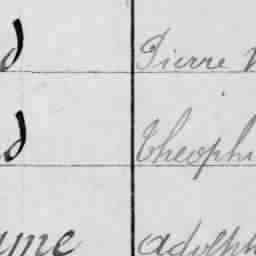 d Pierre
d Theophi
yme Adolph